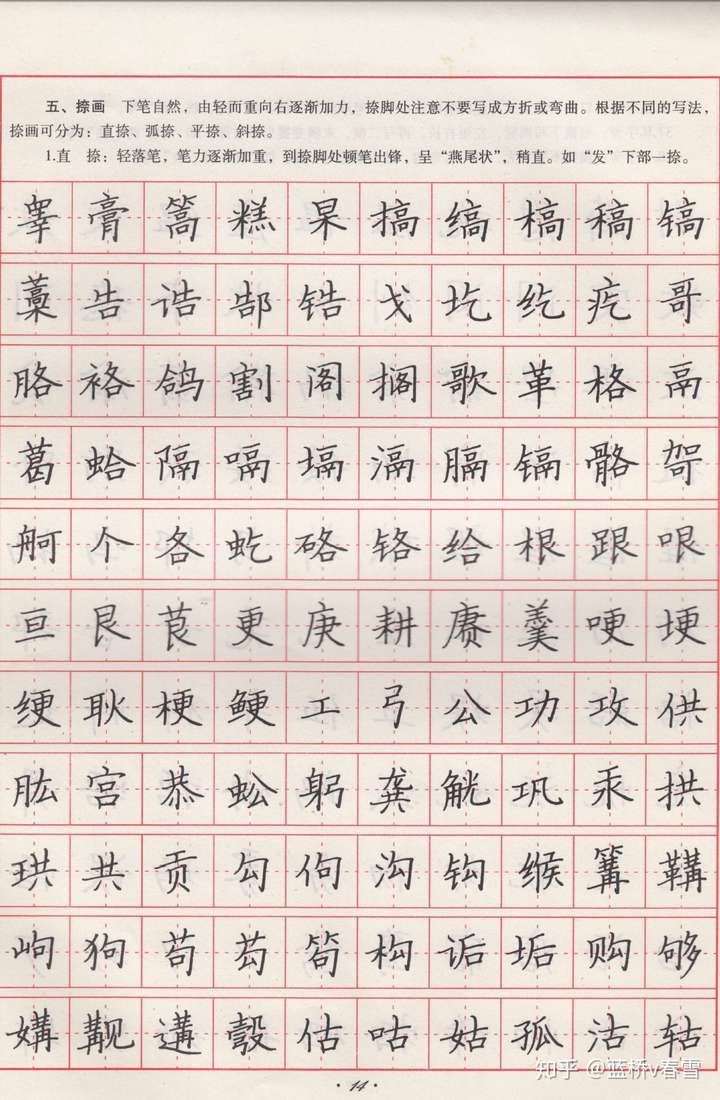 五、捺画 下笔自然，由轻而重向右逐渐加力，捺脚处注意不要写成方折或弯曲。根据不同的写法，
捺画可分为：直捺、弧捺、平捺、斜捺。
1.直 捺：轻落笔，笔力逐渐加重，到捺脚处顿笔出锋，呈“燕尾状”，稍直。如“发”下部一捺。
睾膏篙糕杲搞缟槁稿镐
藁告诰郜锆戈圪纥疙哥
胳袼鸽割阁搁歌革格鬲
葛蛤隔嗝塥滆膈镉骼哿
舸个各虼硌铬给根跟哏
亘艮茛更庚耕赓羹哽埂
绠耿梗鲠工弓公功攻供
肱宫恭蚣躬龚觥巩汞拱
珙共贡勾佝沟钩缑篝鞲
岣狗苟芶笱构诟垢购够
媾觏遘彀估咕姑孤沽轱
知乎 @蓝桥v春雪
·14·